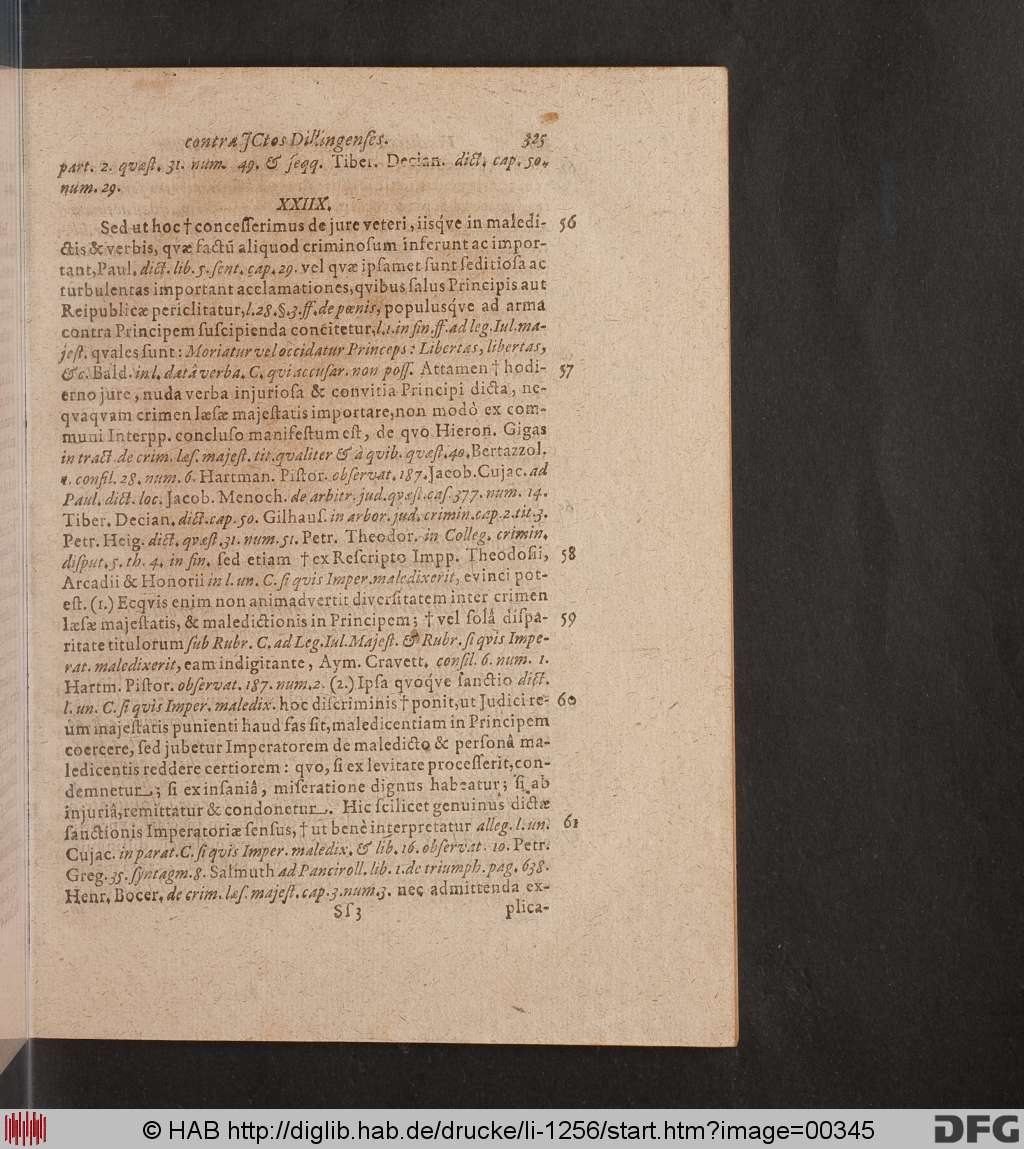 contra JCtos Dillingenses. 325
part. 2. quæſt. 31. num. 49. & ſeqq. Tiber. Decian. dict. cap. 50.
num. 29.
XXIIX.
Sed ut hoc † conceſſerimus de jure veteri, iisq́ve in maledi- 56
ctis & verbis, qvæ factū aliquod criminoſum inferunt ac impor-
tant, Paul. dict. lib. 5. ſent. cap. 29. vel qvæ ipſamet ſunt ſeditioſa ac
turbulentas important acclamationes, qvibus ſalus Principis aut
Reipublicæ periclitatur, l. 28. §. 3. ff. de pœnis, populusq́ve ad arma
contra Principem ſuſcipienda concitetur, l. 1. in fin. ff. ad leg. Iul. ma-
jeſt. qvales ſunt: Moriatur vel occidatur Princeps: Libertas, libertas,
&c. Bald. in l. datâ verba. C. qui accuſar. non poſſ. Attamen † hodi- 57
erno jure, nuda verba injurioſa & convitia Principi dicta, ne-
qvaqvam crimen læſæ majeſtatis importare, non modò ex com-
muni Interpp. concluſo manifeſtum eſt, de qvo Hieron. Gigas
in tract. de crim. læſ. majeſt. tit. qvaliter & à qvib. qvæſt. 40. Bertazzol.
1. conſil. 28. num. 6. Hartman. Piſtor. obſervat. 187. Jacob. Cujac. ad
Paul. dict. loc. Jacob. Menoch. de arbitr. jud. qvæſt. caſ. 377. num. 14.
Tiber. Decian. dict. cap. 50. Gilhauſ. in arbor. jud. crimin. cap. 2. tit. 3.
Petr. Heig. dict. qvæſt. 31. num. 51. Petr. Theodor. in Colleg. crimin.
diſput. 5. th. 4. in fin. ſed etiam † ex Reſcripto Impp. Theodoſii, 58
Arcadii & Honorii in l. un. C. ſi qvis Imper. maledixerit, evinci pot-
eſt. (1.) Ecqvis enim non animadvertit diverſitatem inter crimen
læſæ majeſtatis, & maledictionis in Principem; † vel ſolâ diſpa- 59
ritate titulorum ſub Rubr. C. ad Leg. Iul. Majeſt. & Rubr. ſi qvis Impe-
rat. maledixerit, eam indigitante, Aym. Cravett. conſil. 6. num. 1.
Hartm. Piſtor. obſervat. 187. num. 2. (2.) Ipſa qvoq́ve ſanctio dict.
l. un. C. ſi qvis Imper. maledix. hoc diſcriminis † ponit, ut Judici re- 60
um majeſtatis punienti haud fas ſit, maledicentiam in Principem
coercere, ſed jubetur Imperatorem de maledicto & perſonâ ma-
ledicentis reddere certiorem: qvo, ſi ex levitate proceſſerit, con-
demnetur; ſi ex inſaniâ, miſeratione dignus habeatur; ſi ab
injuriâ, remittatur & condonetur. Hic ſcilicet genuinus dictæ
ſanctionis Imperatoriæ ſenſus, † ut benè interpretatur alleg. l. un. 61
Cujac. in parat. C. ſi qvis Imper. maledix. & lib. 16. obſervat. 10. Petr.
Greg. 35. ſyntagm. 8. Salmuth ad Panciroll. lib. 1. de triumph. pag. 638.
Henr. Bocer. de crim. læſ. majeſt. cap. 3. num. 3. nec admittenda ex-
Sſ 3 plica-
© HAB http://diglib.hab.de/drucke/li-1256/start.htm?image=00345 DFG